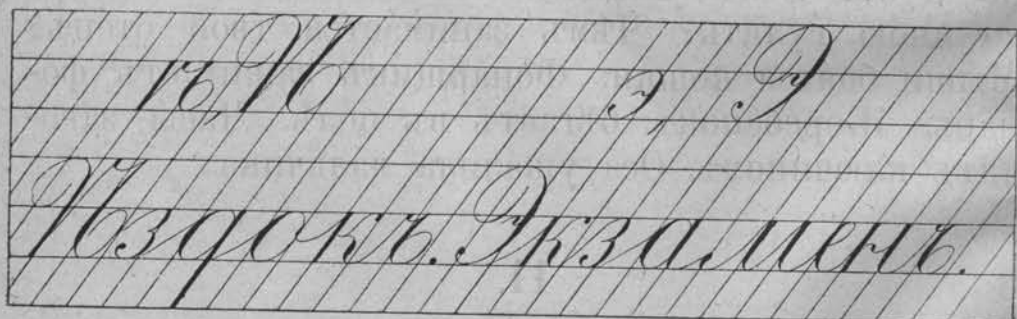 ѣ, Ѣ э, Э
Ѣздокъ. Экзаменъ.